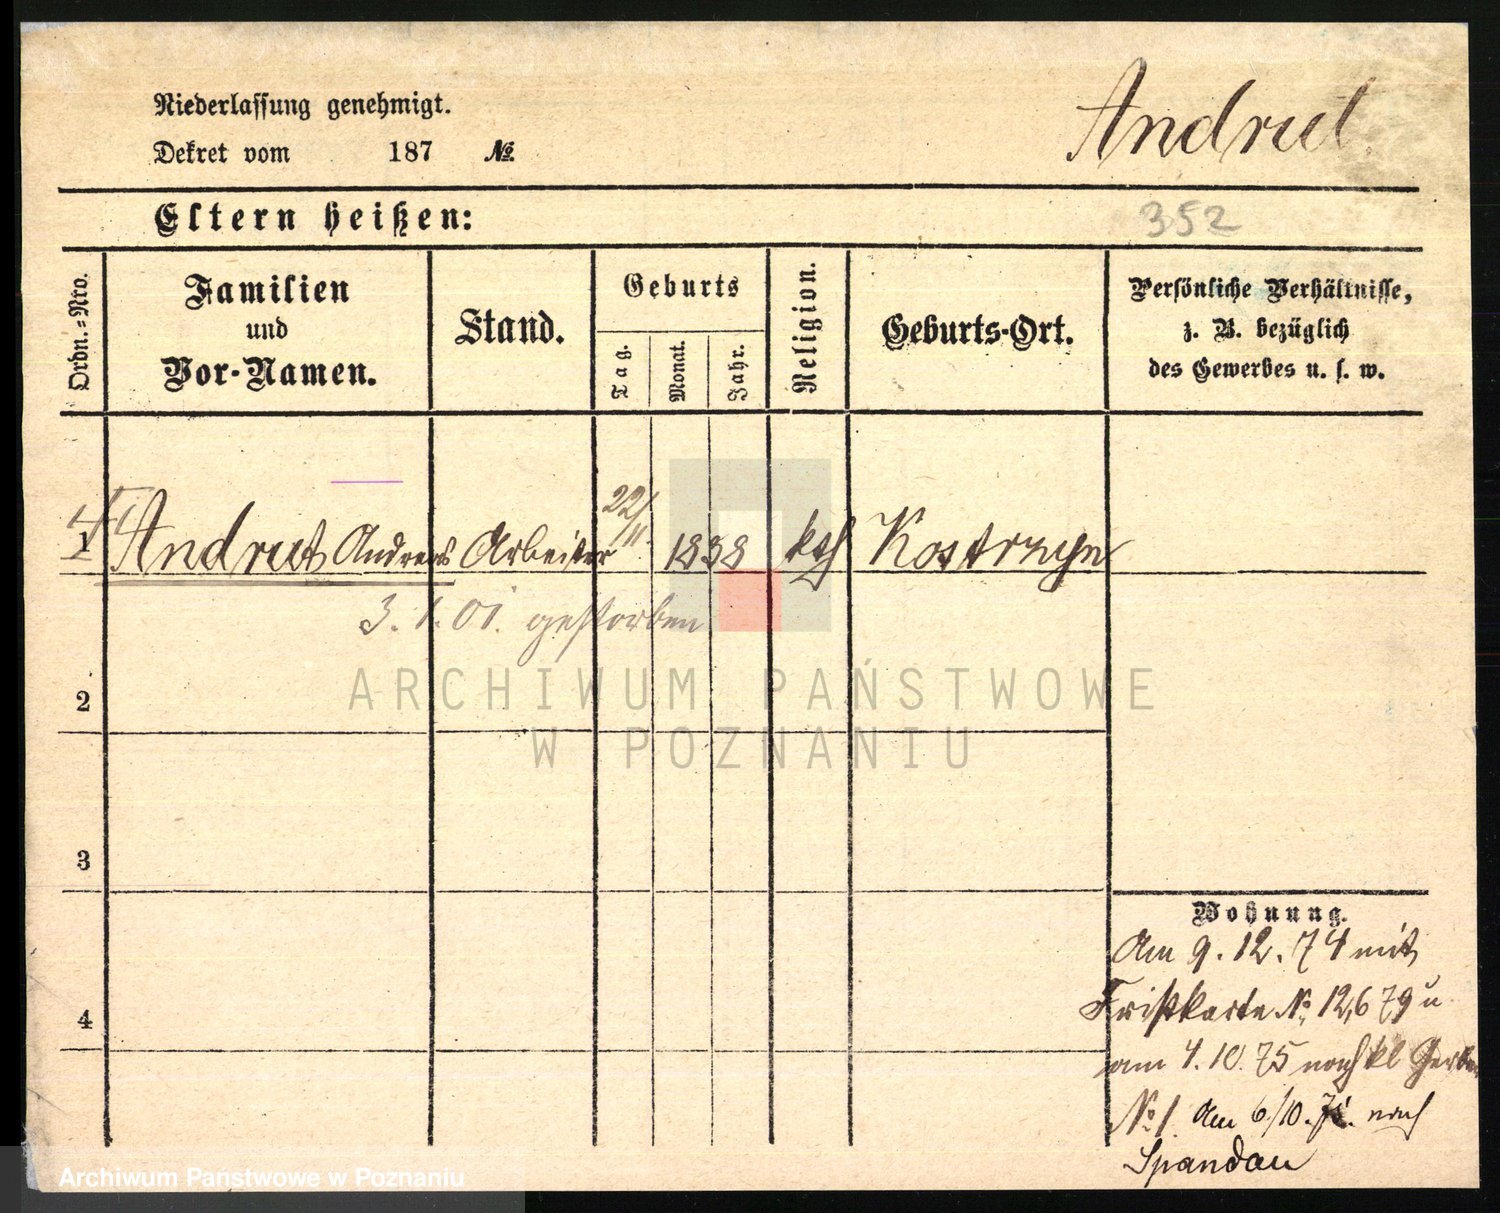 Niederlassung genehmigt.
Andrut
Dekret vom 187 No.
Eltern heißen:
352
Ordn.=Nro.
Familien
und
Vor-Namen.
Stand.
Geburts
Tag.
Monat.
Jahr.
Religion.
Geburts-Ort.
Persönliche Verhältnisse,
z. B. bezüglich
des Gewerbes u. s. w.
1 Andrut Andreas Arbeiter 22/11. 1838 kth Kostrzyn
3. 1. 01. gestorben
2
3
4
Wohnung.
Am 9. 12. 74 mit
Fristkarte No. 12,679 u
am 4. 10. 75 nach kl Gerber
No 1. Am 6/10. nach
Spandau
ARCHIWUM PAŃSTWOWE
W POZNANIU
Archiwum Państwowe w Poznaniu